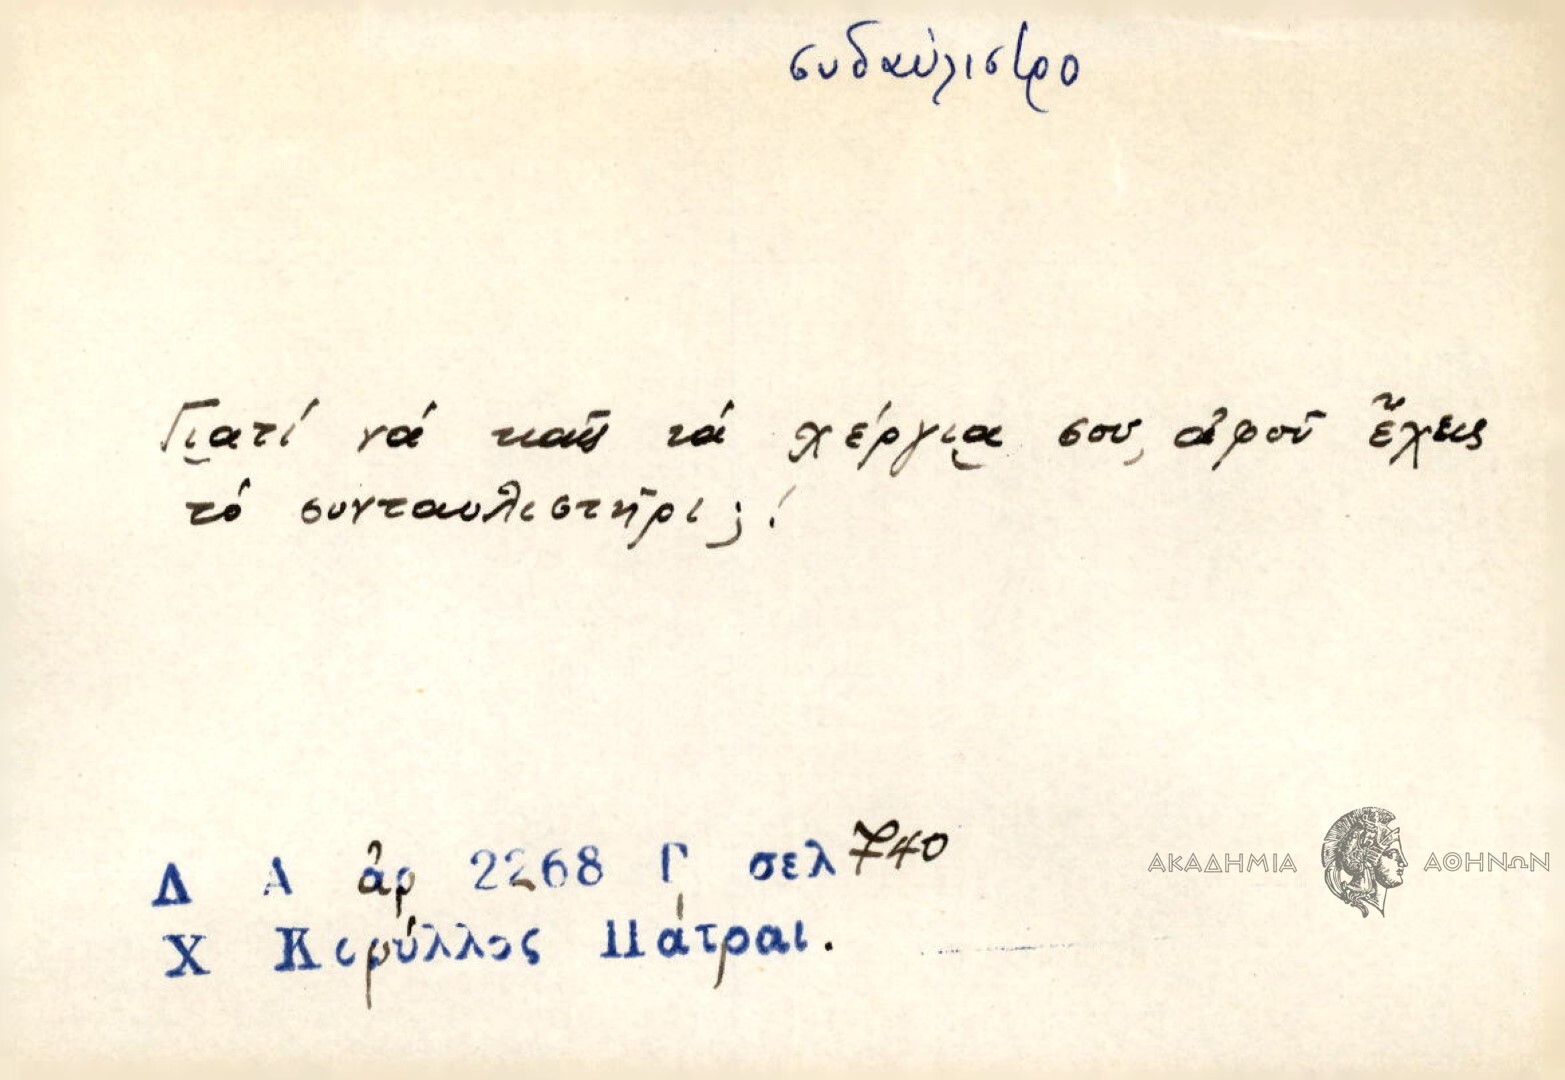 συδαύλιστρο
Γιατί νά καῆς τά χέργια σου, ἀφοῦ ἔχεις
τό συνταυλιστῆρι;!
Δ Α ἀρ 2268 Γ σελ 740
Χ Κορύλλος Πάτραι.
ΑΚΑΔΗΜΙΑ ΑΘΗΝΩΝ